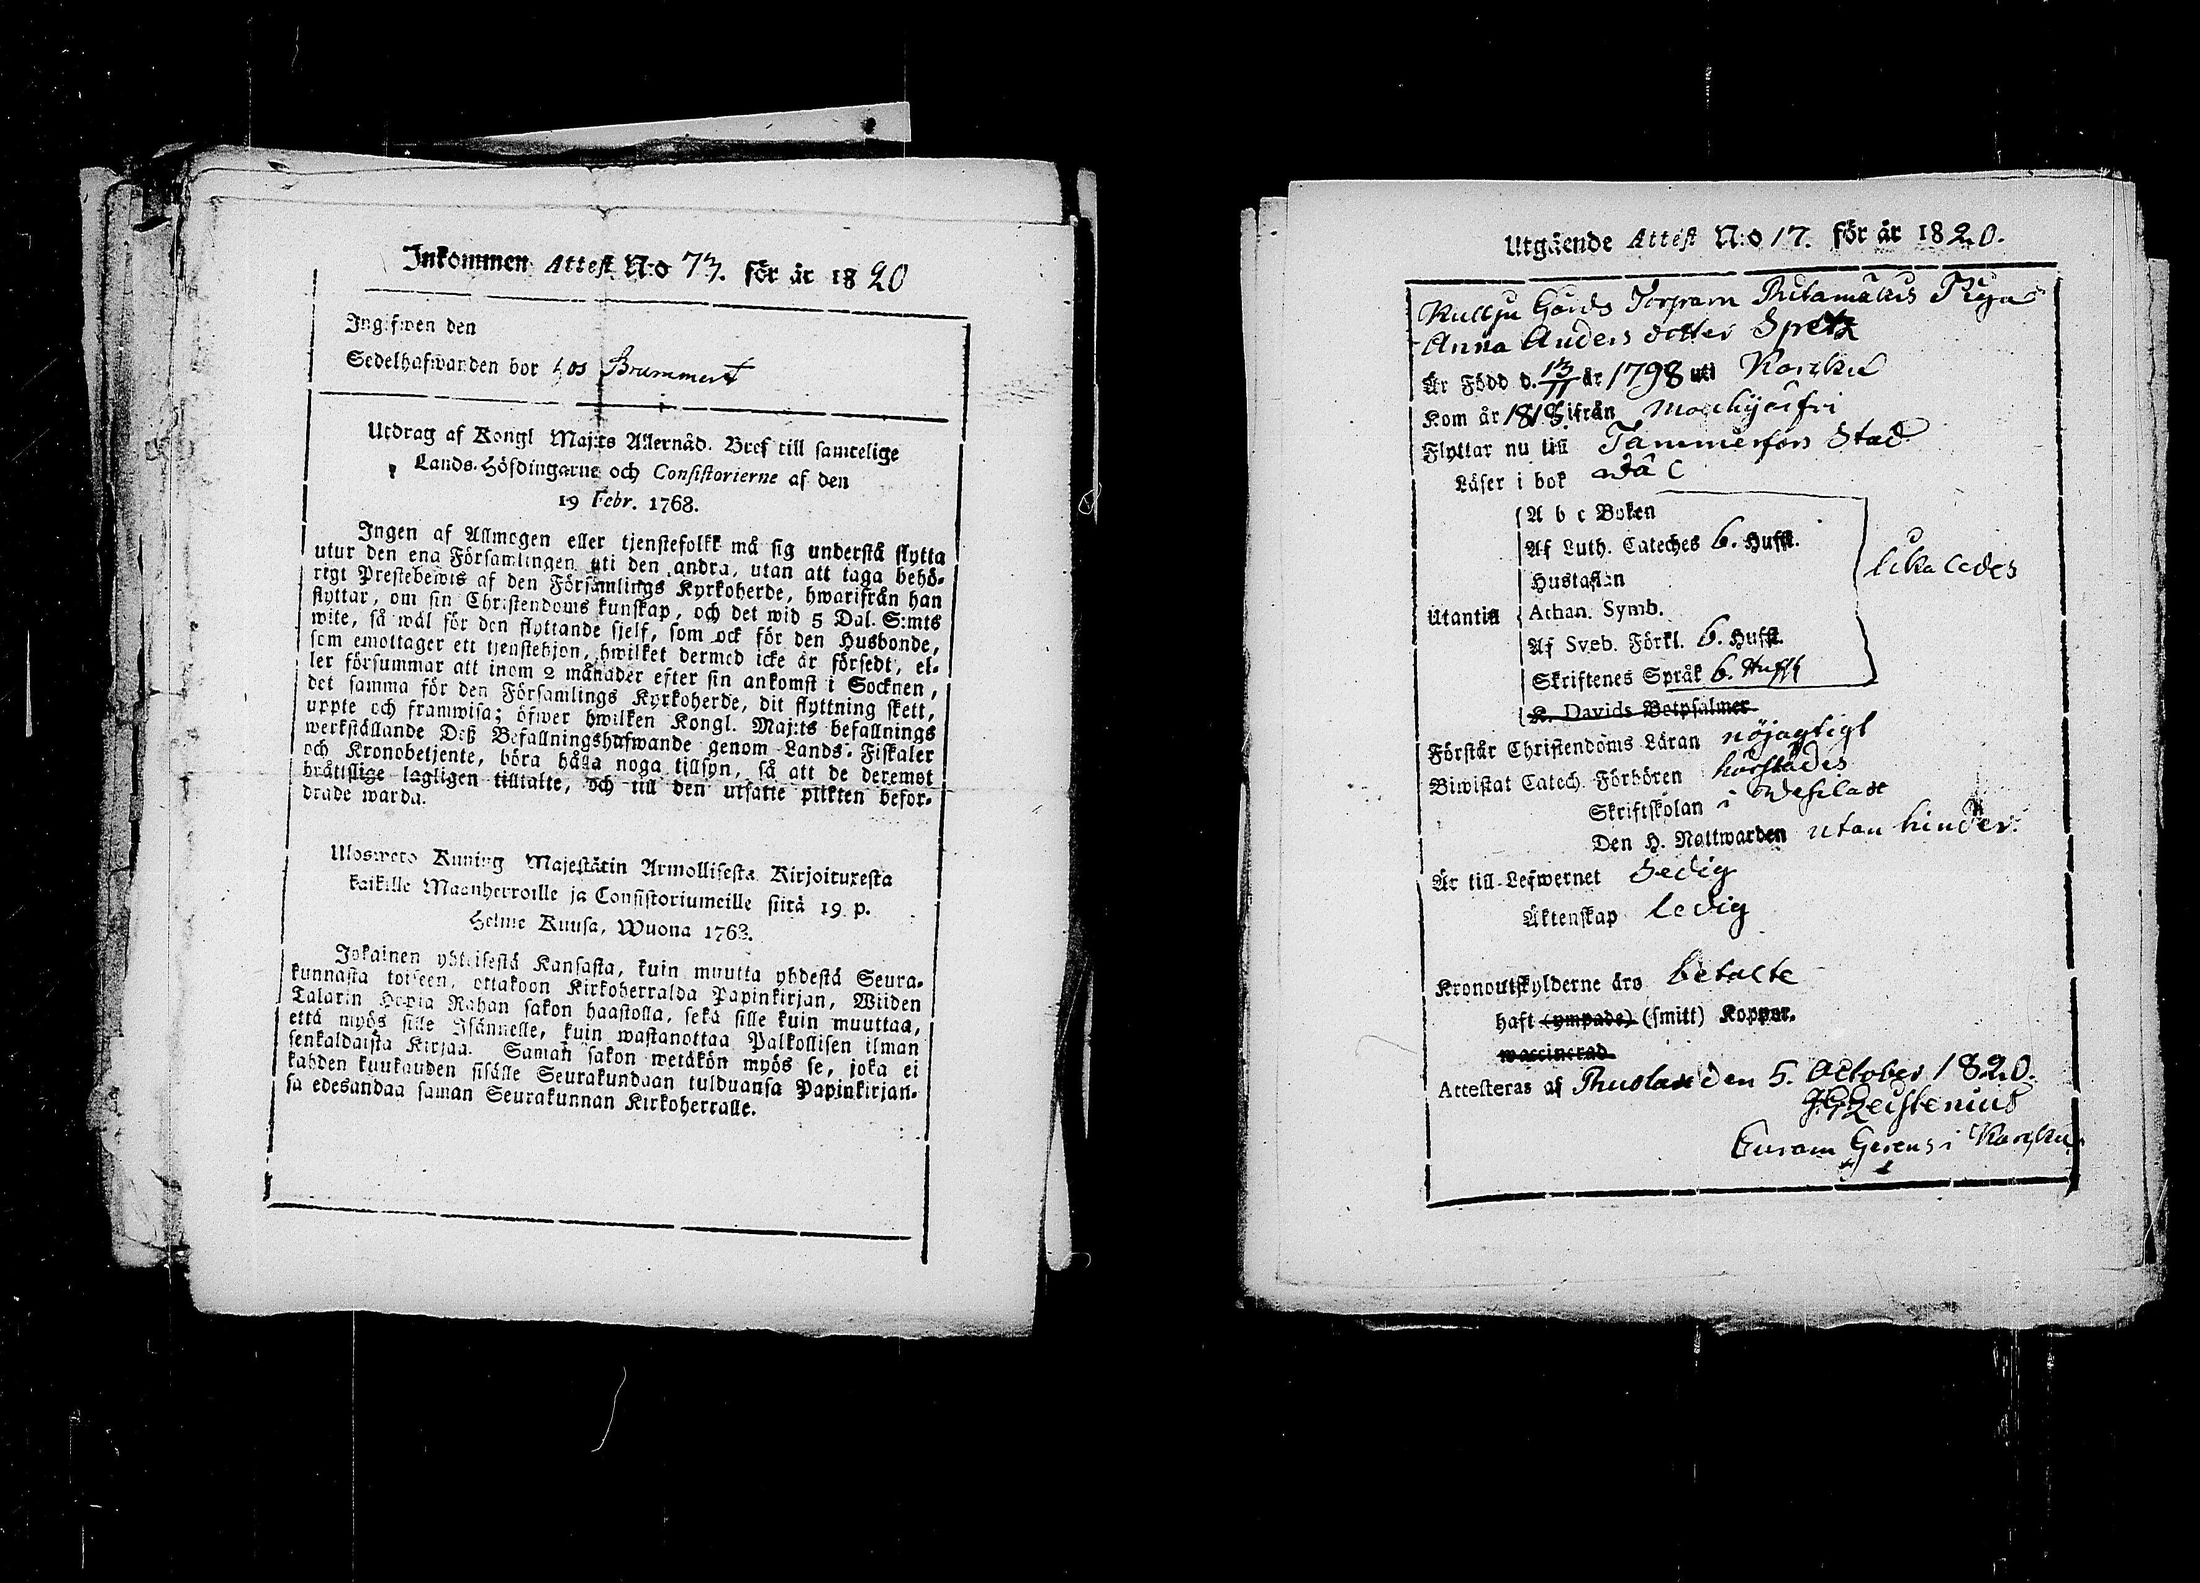 Inkommen Attest N:o 73. för år 1820
Ingifwen den
Sedelhafwanden bor hos Brummert
Utdrag af Kongl Maj:ts Allernåd. Bref till samtelige
Lands-Höfdingarne och Consistorierne af den
19 Febr. 1768.
Ingen af Allmogen eller tjenstefolkk må sig understå flytta
utur den ena Församlingen uti den andra, utan att taga behö-
rigt Prestebewis af den Församlings Kyrkoherde, hwarifrån han
flyttar, om sin Christendoms kunskap, och det wid 5 Dal. S:mts
wite, så wäl för den flyttande sjelf, som ock för den Husbonde,
som emottager ett tjenstehjon, hwilket dermed icke är försedt, el-
ler försummar att inom 2 månader efter sin ankomst i Socknen,
det samma för den Församlings Kyrkoherde, dit flyttning skett,
uppte och framwisa; öfwer hwilken Kongl. Maj:ts befallnings
werkställande Deß Befallningshafwande genom Lands-Fiskaler
och Kronobetjente, böra hålla noga tillsyn, så att de deremot
bråttslige lagligen tilltalte, och till den utsatte plikten befor-
drade warda.
Ulosweto Kuning Majestätin Armollisesta Kirjoituxesta
kaikille Maanherroille ja Consistoriumeille siitä 19 p.
Helme Kuusa, Wuona 1768.
Jokainen yhteisestä Kansasta, kuin muutta yhdestä Seura-
kunnasta toiseen, ottakoon Kirkoherralda Papinkirjan, Wiiden
Talarin Hopia Rahan sakon haastolla, sekä sille kuin muuttaa,
että myös sille Isännelle, kuin wastanottaa Palkollisen ilman
senkaldaista Kirjaa. Saman sakon wetäkön myös se, joka ei
kahden kuukauden sisälle Seurakundaan tulduansa Papinkirjan-
sa edesandaa saman Seurakunnan Kirkoherralle.
Utgående Attest N:o 17. för år 1820.
Kullju Gårds Torparn Piga
Anna Anders dotter Spretz
Är Född d. 13/11 år 1798 uti Karkku
Kom år 1818 ifrån Mouhijärfvi
Flyttar nu till Tammerfors Stad
Läser i bok
A b c Boken
Af Luth. Cateches 6. Hufst.
Hustaflan
likaledes
Utantill Athan. Symb.
Af Sveb. Förkl. 6. Hufst.
Skriftenes Språk 6. Hufst
K. Davids Botpsalmer
Förstår Christendoms Läran nöjagtigt
Biwistat Catech. Förhören
Skriftskolan i
Den H. Nattwarden utan hinder.
Är till Lefwernet Sedig
Äktenskap ledig
Kronoutskylderne äro betalte
haft (ympade) (smitt) Koppor.
waccinerad
Attesteras af den 5. October 1820.
i Karkku